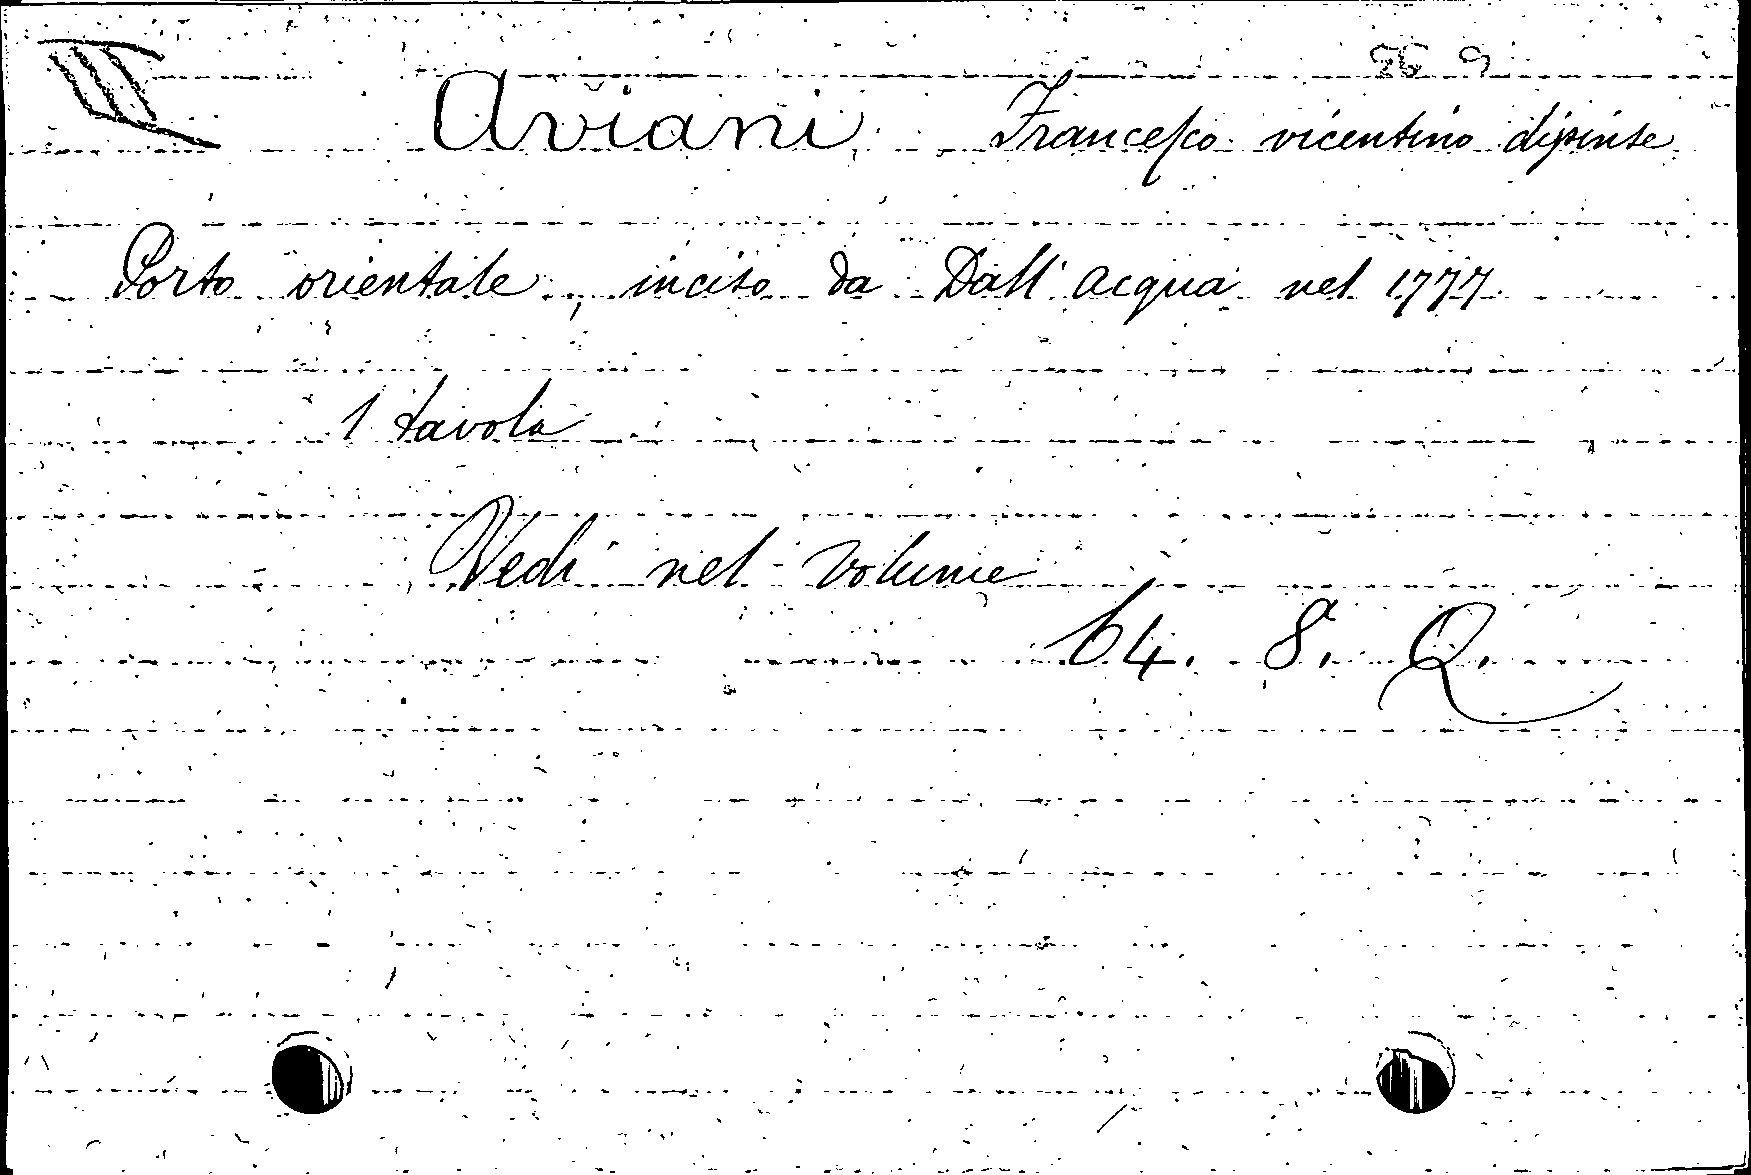 III
Aviani Francesco vicentino dipinse
Porto orientale, inciso da Dall'acqua nel 1777
1 tavola
Vedi nel volume
64. 8. Q.